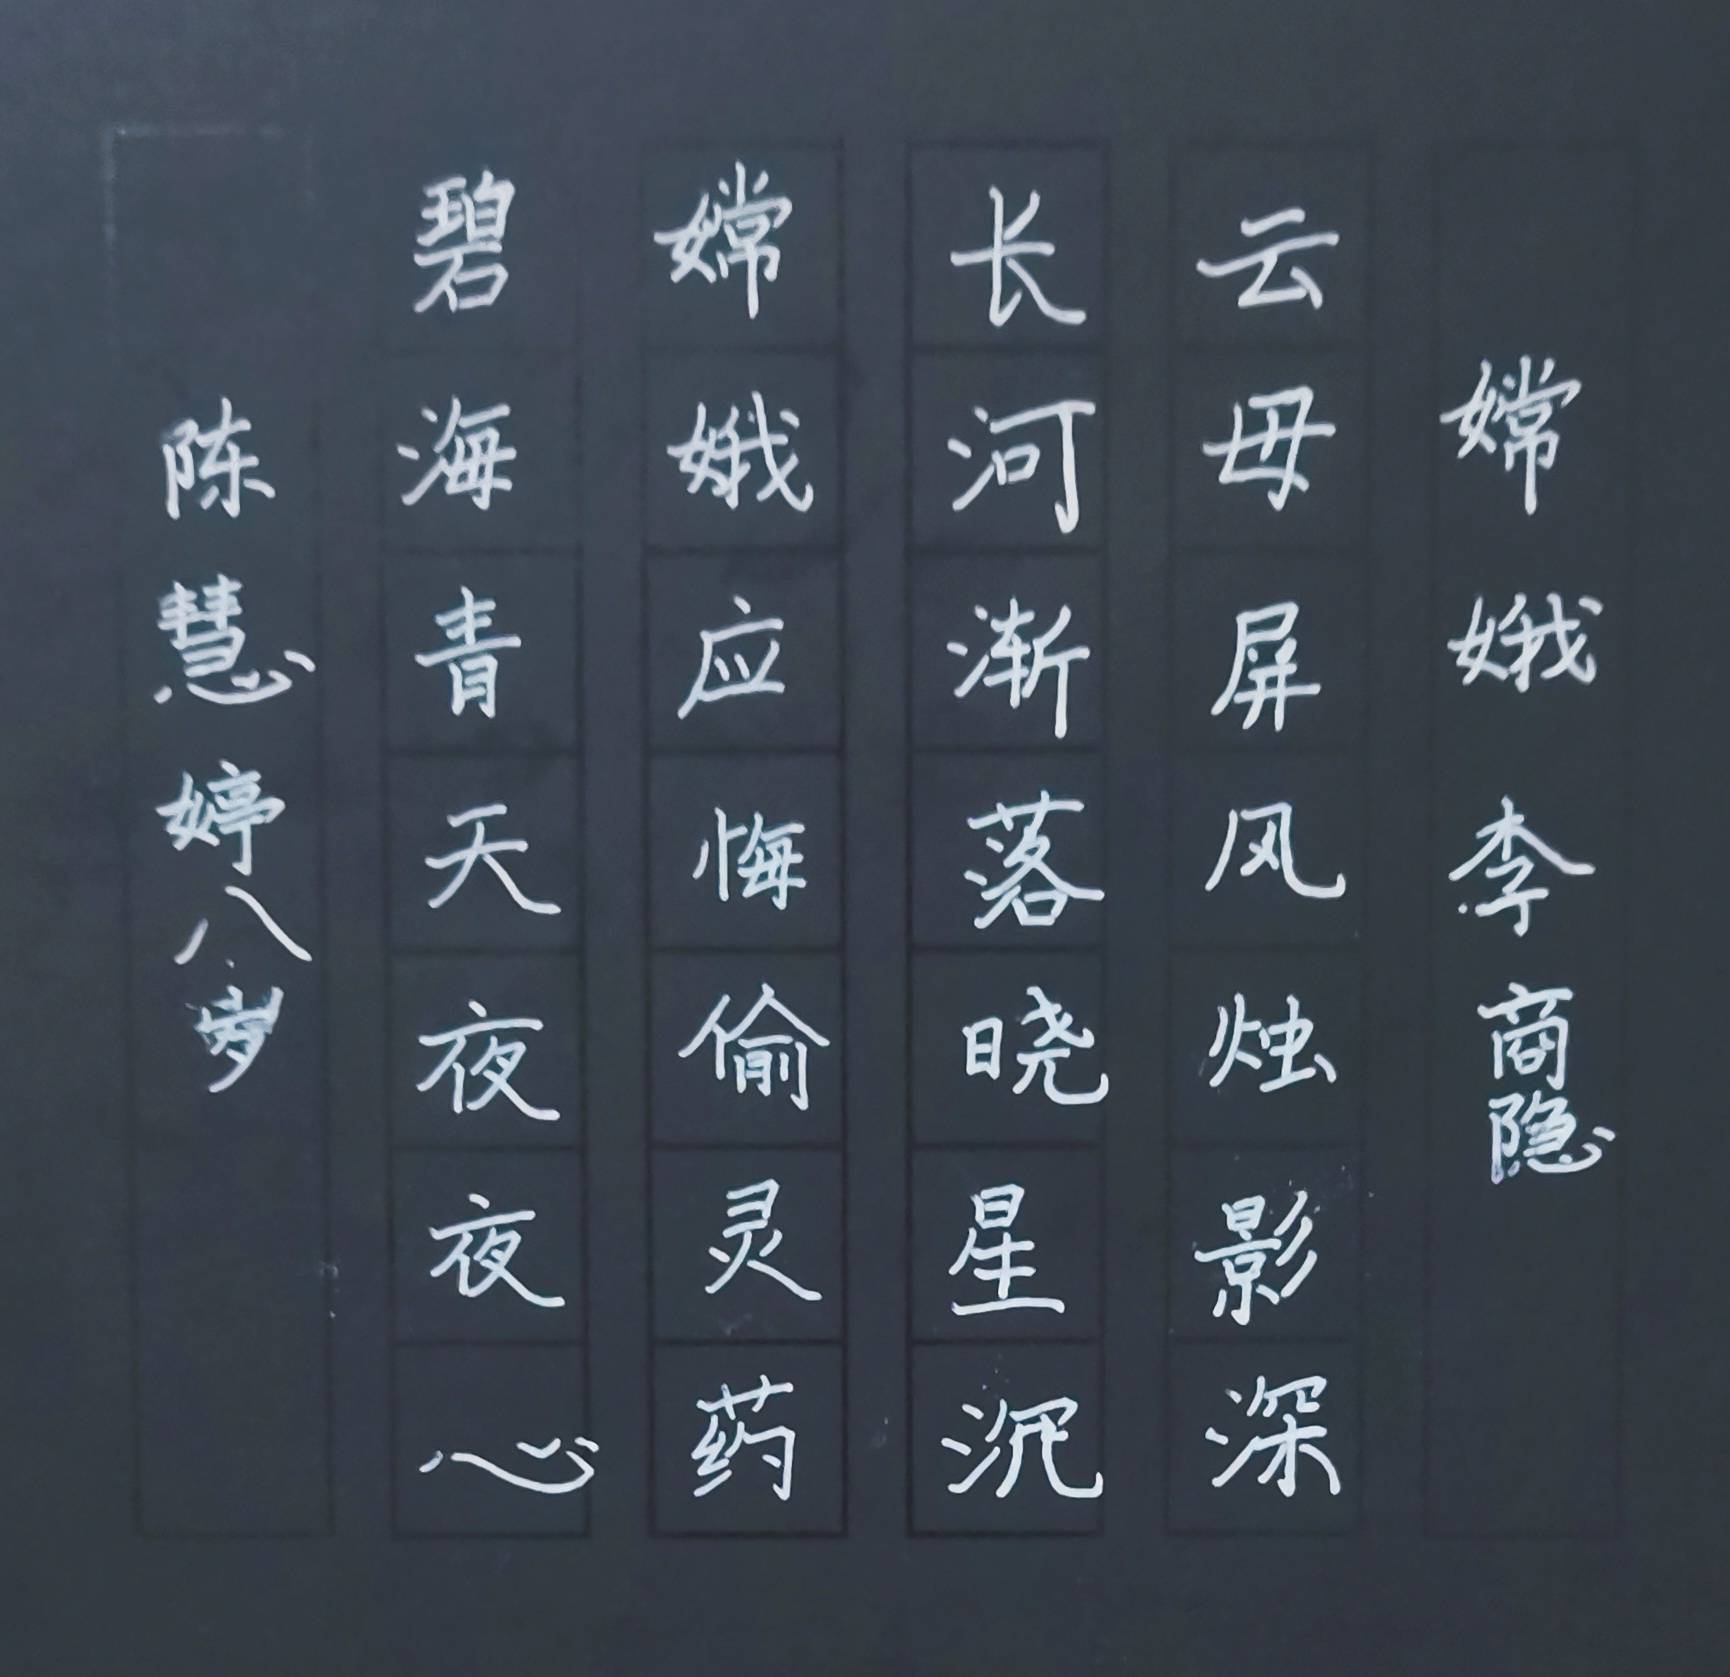 嫦娥李商隐
云母屏风烛影深
长河渐落晓星沉
嫦娥应悔偷灵药
碧海青天夜夜心
陈慧婷八岁